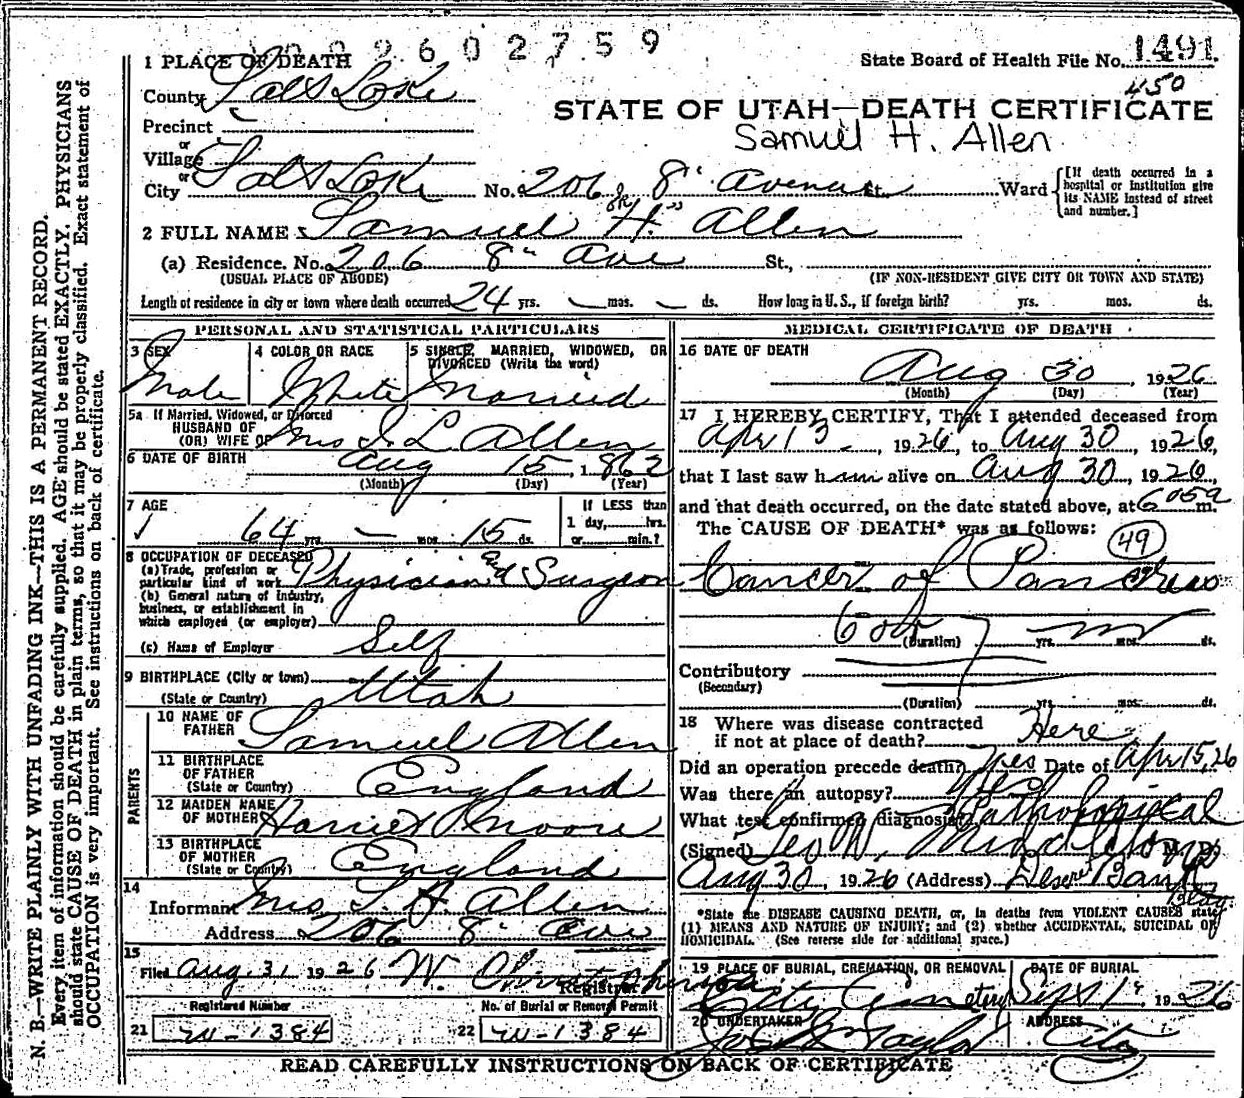 2602759
State Board of Health File No. 1491
1 PLACE OF DEATH
450
County Salt Lake
STATE OF UTAH—DEATH CERTIFICATE
Precinct
Samuel H. Allen
or
Village
or
City Salt Lake No. 206 8" Avenue St. Ward [If death occurred in a hospital or institution give its NAME instead of street and number.]
2 FULL NAME Samuel H. Allen
(a) Residence. No. 206 8" Ave St.,
(USUAL PLACE OF ABODE) (IF NON-RESIDENT GIVE CITY OR TOWN AND STATE)
Length of residence in city or town where death occurred 24 yrs. — mos. — ds. How long in U. S., if foreign birth? yrs. mos. ds.
PERSONAL AND STATISTICAL PARTICULARS
3 SEX 4 COLOR OR RACE 5 SINGLE, MARRIED, WIDOWED, OR
DIVORCED (Write the word)
Male White Married
5a If Married, Widowed, or Divorced
HUSBAND OF
(OR) WIFE OF Mrs S. L. Allen
6 DATE OF BIRTH Aug 15, 1862
(Month) (Day) (Year)
7 AGE If LESS than
1 day, hrs.
64 yrs. — mos. 15 ds. or min.?
8 OCCUPATION OF DECEASED
(a) Trade, profession or
particular kind of work Physician and Surgeon
(b) General nature of Industry,
business, or establishment in
which employed (or employer)
(c) Name of Employer Self
9 BIRTHPLACE (City or town)
(State or Country) Utah
PARENTS
10 NAME OF
FATHER Samuel Allen
11 BIRTHPLACE
OF FATHER
(State or Country) England
12 MAIDEN NAME
OF MOTHER Harriet P. Moore
13 BIRTHPLACE
OF MOTHER
(State or Country) England
14
Informant Mrs S. H. Allen
Address 206 8" Ave
15
Filed Aug. 31 1926 W. Christopherson
Registrar
Registered Number No. of Burial or Removal Permit
21 W-1384 22 W-1384
MEDICAL CERTIFICATE OF DEATH
16 DATE OF DEATH
Aug 30, 1926
(Month) (Day) (Year)
17 I HEREBY CERTIFY, That I attended deceased from
Apr 13, 1926, to Aug 30 1926,
that I last saw him alive on Aug 30, 1926,
and that death occurred, on the date stated above, at 6 05 a m.
The CAUSE OF DEATH* was as follows:
49
Cancer of Pancreas
(Duration) yrs. mos. ds.
Contributory
(Secondary)
(Duration) yrs. mos. ds.
18 Where was disease contracted
if not at place of death? Here
Did an operation precede death? Yes Date of Apr 15, 26
Was there an autopsy?
What test confirmed diagnosis? Pathological
(Signed) Geo W. Middleton M. D.
Aug 30, 1926 (Address) Deseret Bank Bldg.
*State the DISEASE CAUSING DEATH, or, in deaths from VIOLENT CAUSES state
(1) MEANS AND NATURE OF INJURY; and (2) whether ACCIDENTAL, SUICIDAL OR
HOMICIDAL. (See reverse side for additional space.)
19 PLACE OF BURIAL, CREMATION, OR REMOVAL DATE OF BURIAL
City Cemetery Sept 1" 1926
20 UNDERTAKER ADDRESS
Taylor City
READ CAREFULLY INSTRUCTIONS ON BACK OF CERTIFICATE
N. B.—WRITE PLAINLY WITH UNFADING INK—THIS IS A PERMANENT RECORD.
Every item of information should be carefully supplied. AGE should be stated EXACTLY. PHYSICIANS
should state CAUSE OF DEATH in plain terms, so that it may be properly classified. Exact statement of
OCCUPATION is very important. See instructions on back of certificate.